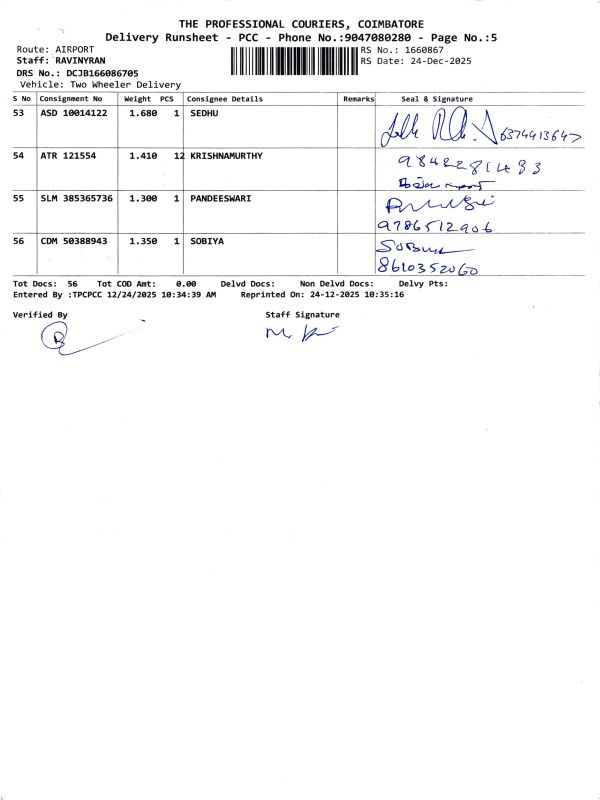 THE PROFESSIONAL COURIERS, COIMBATORE
Delivery Runsheet - PCC - Phone No.:9047080280 - Page No.:5
Route: AIRPORT RS No.: 1660867
Staff: RAVINYRAN RS Date: 24-Dec-2025
DRS No.: DCJB166086705
Vehicle: Two Wheeler Delivery
S No Consignment No Weight PCS Consignee Details Remarks Seal & Signature
53 ASD 10014122 1.680 1 SEDHU
6374913647
54 ATR 121554 1.410 12 KRISHNAMURTHY
9842281483
55 SLM 385365736 1.300 1 PANDEESWARI
9786512906
56 CDM 50388943 1.350 1 SOBIYA
8610352060
Tot Docs: 56 Tot COD Amt: 0.00 Delvd Docs: Non Delvd Docs: Delvy Pts:
Entered By :TPCPCC 12/24/2025 10:34:39 AM Reprinted On: 24-12-2025 10:35:16
Verified By Staff Signature